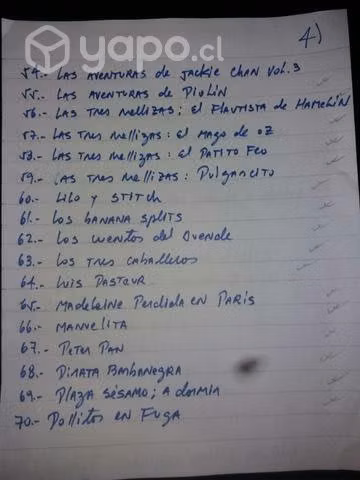 yapo.cl
4)
54.- LAS AVENTURAS de JACKIE CHAN VOL.3
55.- LAS AVENTURAS de PIOLÍN
56.- LAS TRES MELLIZAS; EL FLAUTISTA DE HAMELÍN
57.- LAS TRES MELLIZAS: EL MAGO DE OZ
58.- LAS TRES MELLIZAS: EL PATITO FEO
59.- LAS TRES MELLIZAS: PULGARCITO
60.- LILO Y STITCH
61.- LOS BANANA SPLITS
62.- LOS CUENTOS DEL DUENDE
63.- LOS TRES CABALLEROS
64.- LUIS PASTEUR
65.- MADELEINE PERDIDA EN PARÍS
66.- MANUELITA
67.- PETER PAN
68.- PIRATA BARBANEGRA
69.- PLAZA SÉSAMO; A DORMIR
70.- POLLITOS EN FUGA